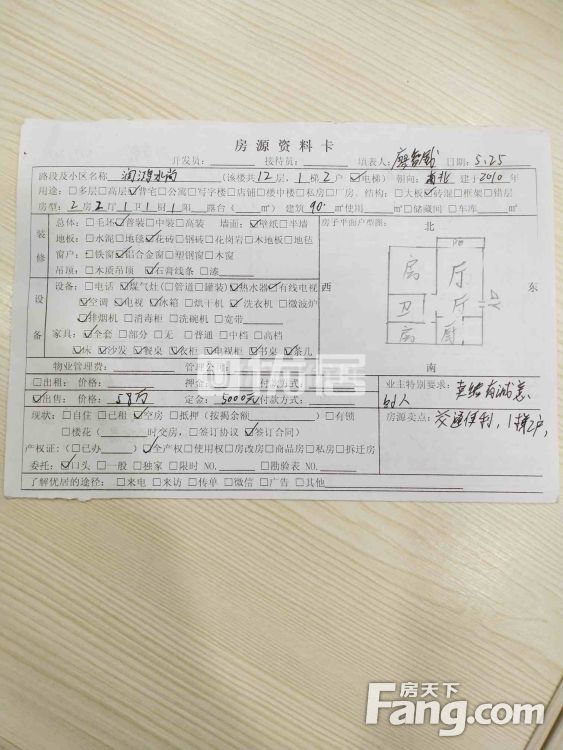 房源资料卡
开发员：　接待员：　填表人：　日期：5.25
路段及小区名称　（该楼共12层，1梯2户 ☑电梯）朝向：南北 建于2010年
用途：□多层□高层☑普宅□公寓□写字楼□店铺□楼中楼□私房□厂房、结构：□大板☑砖混□框架□错层
房型：2房2厅1卫1厨1阳□露台（　㎡）建筑90㎡ □储藏间 □车库　㎡
装修
总体：□毛坯☑普装□中装□高装　墙面：☑壁纸□半墙
地板：□水泥□地毯☑花砖□钢砖□花岗岩□木地板□地毯
门窗：□铁窗☑铝合金窗□塑钢窗□木窗
吊顶：□木质吊顶 ☑石膏线条 □漆
房子平面户型图：
北
西
东
南
房
厅
卫
厅
房
厨
设备
设备：□电话 ☑煤气灶（□管道□罐装）☑热水器☑有线电视
☑空调 ☑电视 ☑冰箱 □烘干机 ☑洗衣机 □微波炉
☑排烟机 □消毒柜 □洗碗机 □宽带
家具：☑全套 □部分 □无 □普通 □中档 □高档
☑床 ☑沙发 ☑餐桌 ☑衣柜 ☑电视柜 ☑书桌 ☑茶几
物业管理费：　管理公司：
□出租：价格：　押金：　付款方式：
☑出售：价格：58万　定金：5000元 付款方式：
业主特别要求：
现状：□自住 □已租 ☑空房 □抵押（按揭余额　）□有锁
□楼花（　时交房，□签订协议 ☑签订合同）
房源卖点：交通便利，1梯2户，
产权证：（□已办　）☑全产权□使用权□房改房□商品房□私房□拆迁房
委托：☑口头 □一般 □独家 □限时NO.　□勘验表NO.
了解优居的途径：□来电 □来访 □传单 □微信 □广告 □其他
优居
房天下
Fang.com